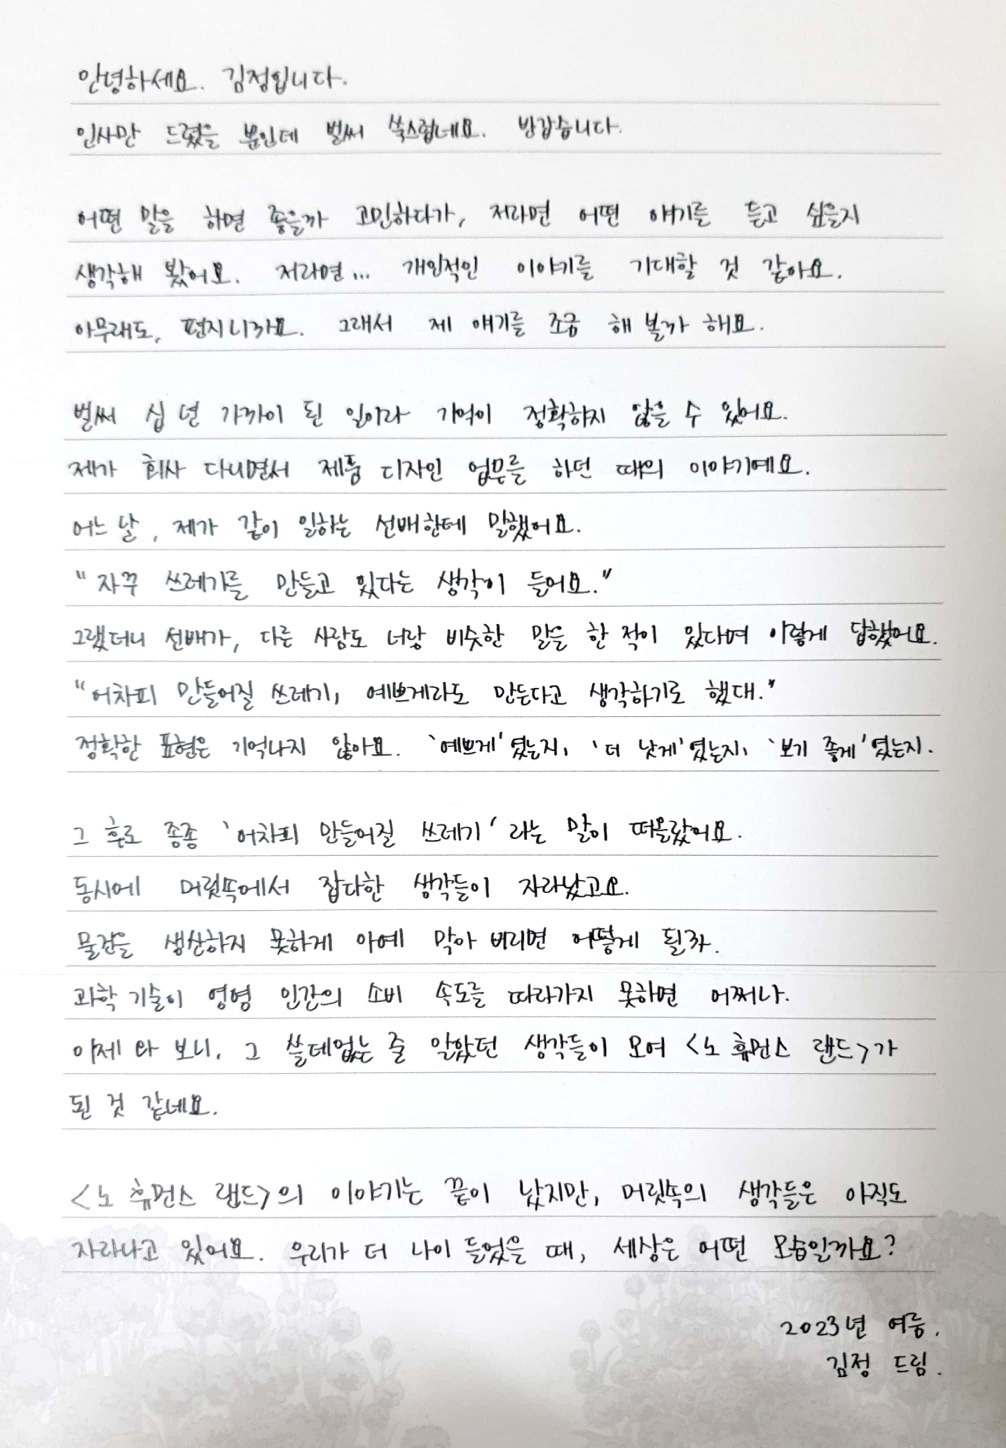 안녕하세요. 김정입니다.
인사만 드렸을 뿐인데 벌써 쑥스럽네요. 반갑습니다.
어떤 말을 하면 좋을까 고민하다가, 저라면 어떤 얘기를 듣고 싶을지
생각해 봤어요. 저라면... 개인적인 이야기를 기대할 것 같아요.
아무래도, 편지니까요. 그래서 제 얘기를 조금 해 볼까 해요.
벌써 십 년 가까이 된 일이라 기억이 정확하지 않을 수 있어요.
제가 회사 다니면서 제품 디자인 업무를 하던 때의 이야기예요.
어느 날, 제가 같이 일하는 선배한테 말했어요.
"자꾸 쓰레기를 만들고 있다는 생각이 들어요."
그랬더니 선배가, 다른 사람도 너랑 비슷한 말을 한 적이 있다며 이렇게 답했어요.
"어차피 만들어질 쓰레기, 예쁘게라도 만든다고 생각하기로 했대."
정확한 표현은 기억나지 않아요. '예쁘게'였는지, '더 낫게'였는지, '보기 좋게'였는지.
그 후로 종종 '어차피 만들어질 쓰레기'라는 말이 떠올랐어요.
동시에 머릿속에서 잡다한 생각들이 자라났고요.
물건을 생산하지 못하게 아예 막아 버리면 어떻게 될까.
과학 기술이 영영 인간의 소비 속도를 따라가지 못하면 어쩌나.
이제 와 보니, 그 쓸데없는 줄 알았던 생각들이 모여 <노 휴먼스 랜드>가
된 것 같네요.
<노 휴먼스 랜드>의 이야기는 끝이 났지만, 머릿속의 생각들은 아직도
자라나고 있어요. 우리가 더 나이 들었을 때, 세상은 어떤 모습일까요?
2023년 여름.
김정 드림.